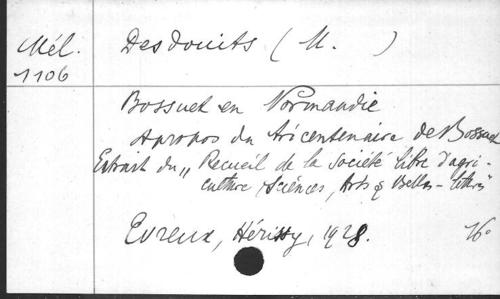 Mél. 1106
Desdouits (M. )
Bossuet en Normandie
Apropos du tricentenaire de Bossuet
Extrait du „Recueil de la Société libre d'agri-
culture, Sciences, Arts & Belles-lettres"
Evreux, Hérissy, 1928. 16°